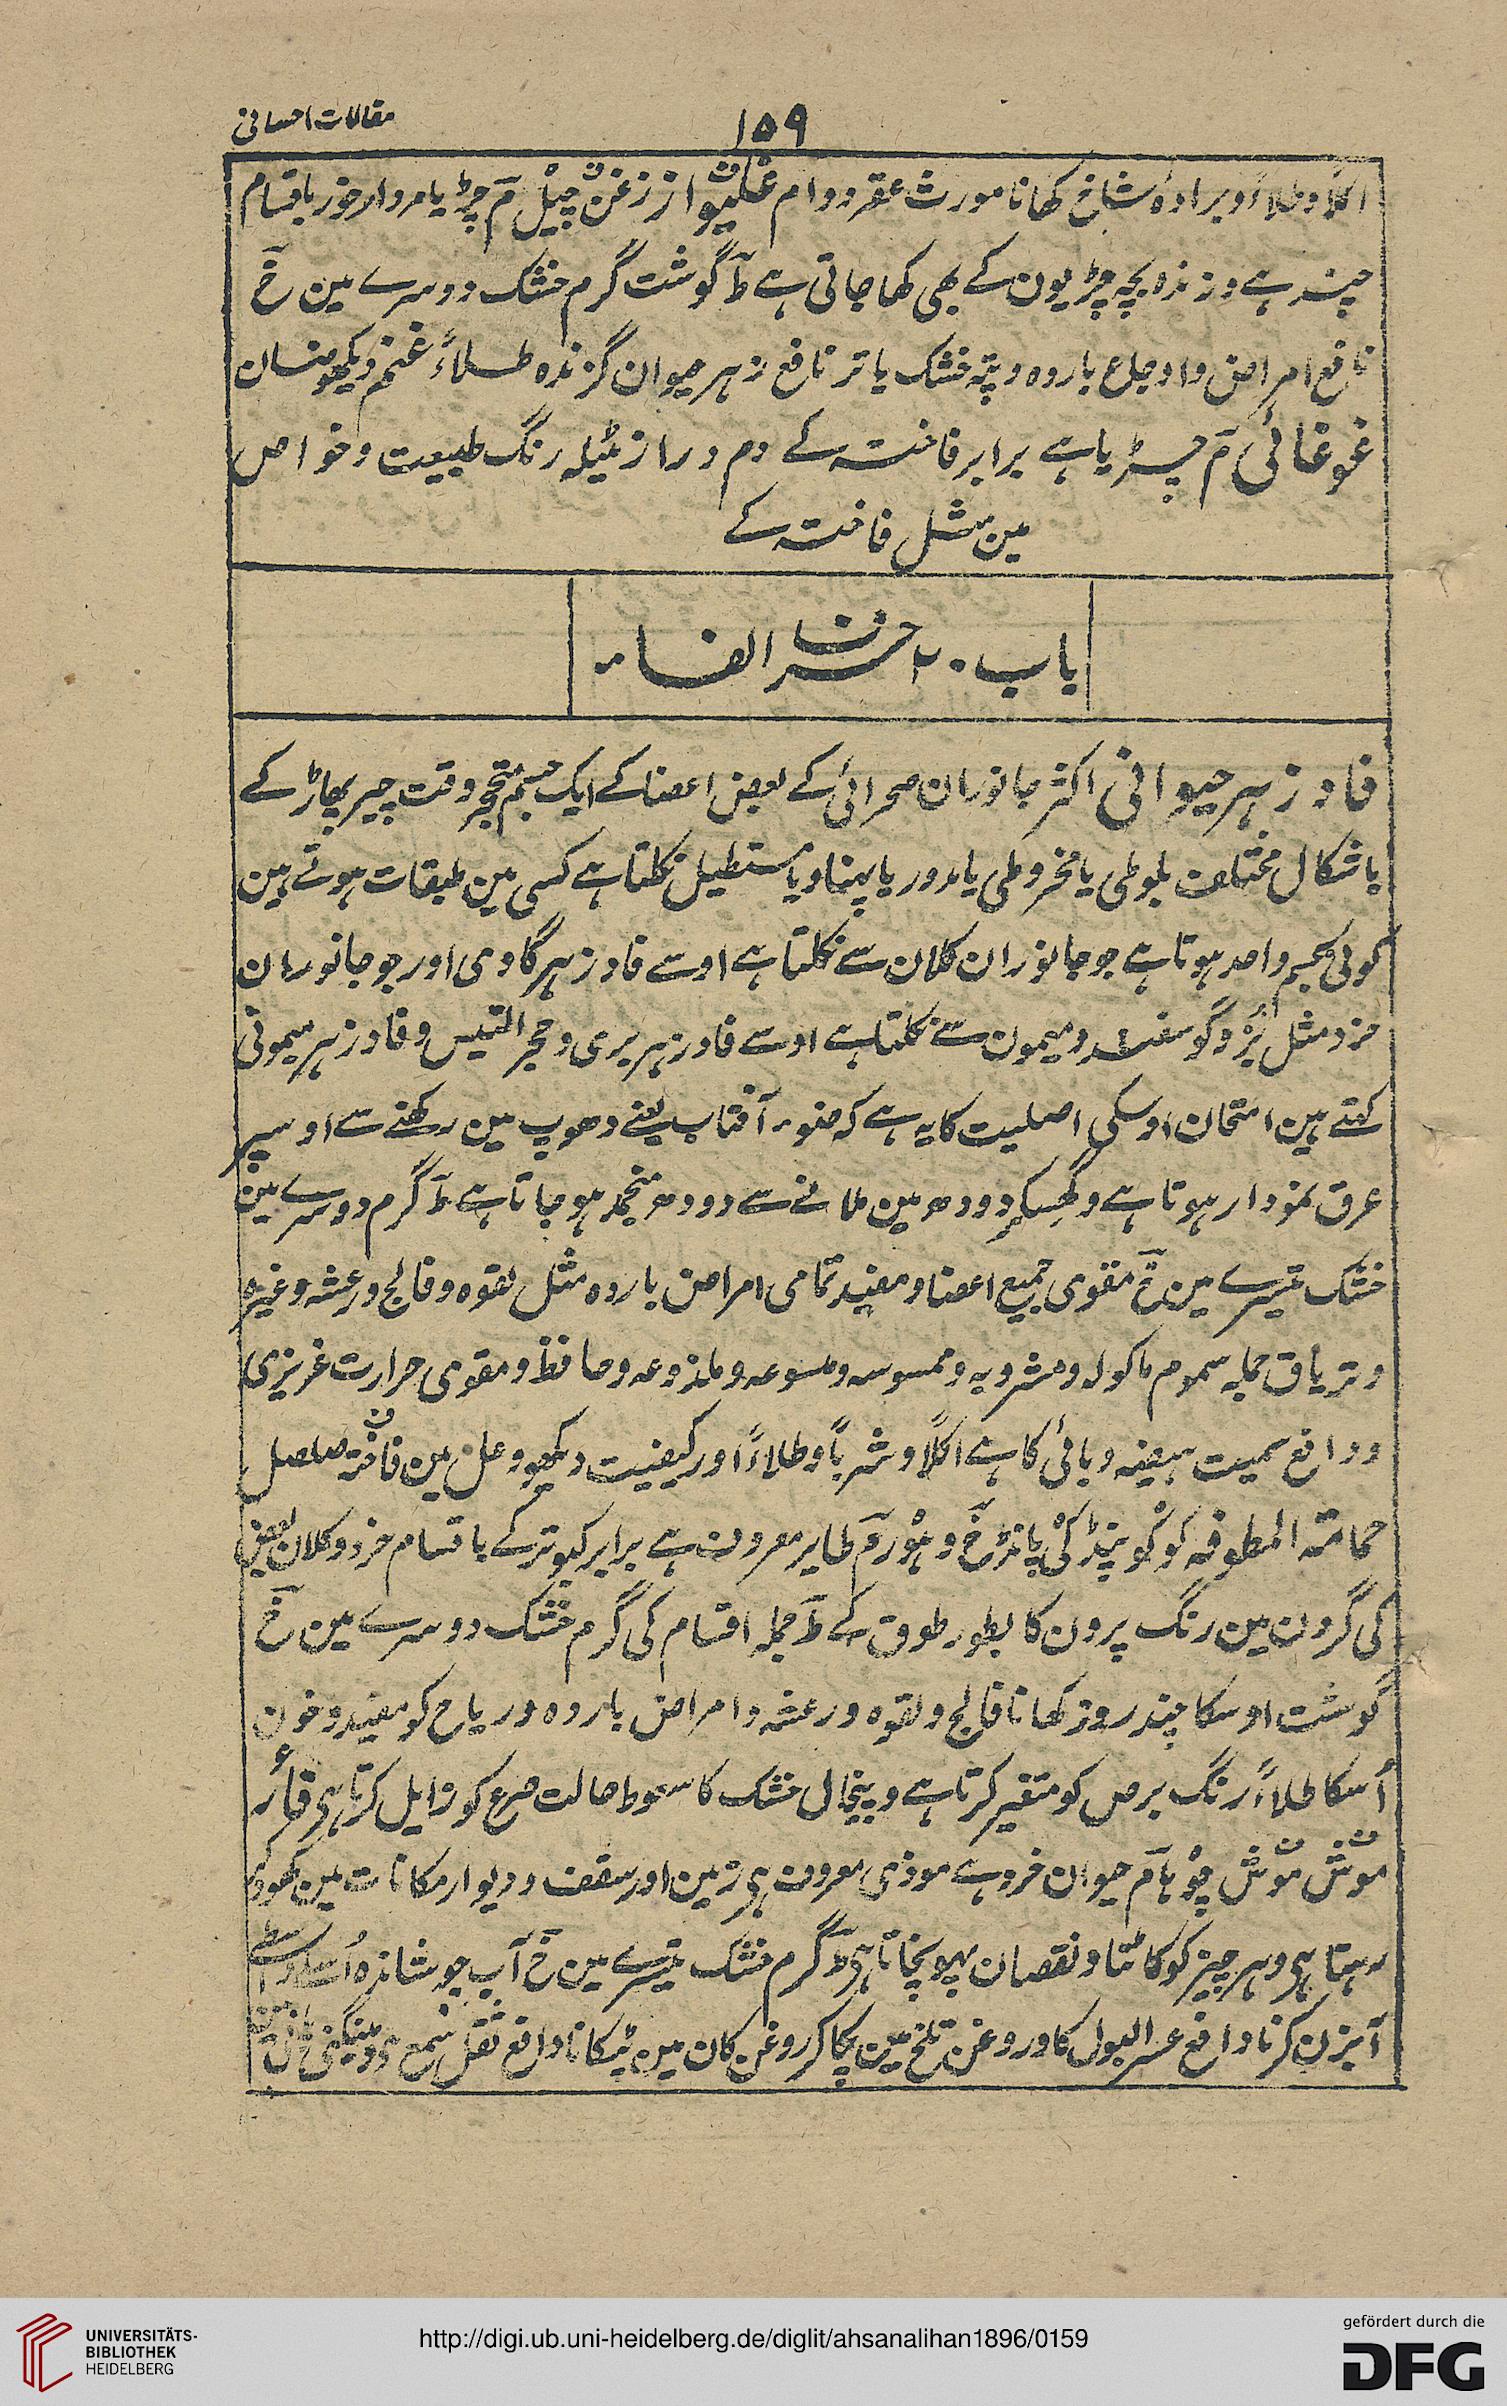 مقالات احسانی
۱۵۹
اکلاً و طلاءً و برادۂ شاخ کھانا مورث عقر و وام غلیواز زغن چیل مؔ چڑیا مردار خور باقسام
چند ہے و زندہ بچہ چڑیون کے بھی کھا جاتی ہے طؔ گوشت گرم خشک دوسرے مین خؔ
نافع امراض و اوجاع باردہ و پتہ خشک یا تر نافع زہر حیوان گزندہ طلاءً غنم دیکھو ضان
غوغائی مؔ چڑیا ہے برابر فاختہ کے دم دراز مٹیلہ رنگ طبیعت و خواص
مین مثل فاختہ کے
باب ۲۰ حرف الفاء
فاد زہر حیوانی اکثر جانوران صحرائی کے بعض اعضا کے ایک جسم متحجر وقت چیر پھاڑ کے
باشکال مختلف بلوطی یا مخروطی یا مدور یا پہناو یا مستطیل نکلتا ہے کسی مین طبقات ہوتے ہین
کوئی جسم واحد ہوتا ہے جو جانوران کلان سے نکلتا ہے اوسے فادزہر گاوی اور جو جانوران
خرد مثل بُز و گوسفند و میمون سے نکلتا ہے اوسے فادزہر بری و حجر التیس و فادزہر میمونی
کہتے ہین امتحان اوسکی اصلیت کا یہ ہے کہ ضوء آفتاب یعنے دھوپ مین رکھنے سے اوسپر
عرق نمودار ہوتا ہے و گھسکر دودھ مین ملانے سے دودھ منجمد ہو جاتا ہے طؔ گرم دوسرے مین
خشک تیسرے مین خؔ مقوی جمیع اعضا و مفید تمامی امراض باردہ مثل لقوہ و فالج و رعشہ وغیرہ
و تریاق جملہ سموم ماکولہ و مشروبہ و ملسوعہ و ملذوعہ و حافظ و مقوی حرارت غریزی
و دافع سمیت ہیضہ وبائی کا ہے اکلاً و شرباً و طلاءً اور کیفیت دیکھو وعل مین فاختہ صلصل
حمامتہ المطوقہ کوکو پنڈکی پانڈخ و ہؤر مؔ طایر معروف ہے برابر کبوتر کے باقسام خرد و کلان بعض
کی گردن مین رنگ پرون کا بطور طوق کے طؔ جملہ اقسام کی گرم خشک دوسرے مین خؔ
گوشت اوسکا چند روز کھانا فالج و لقوہ و رعشہ و امراض باردہ و ریاح کو مفید و خون
اُسکا طلاءً رنگ برص کو متغیر کرتا ہے و پیخال خشک کا سعوط حالت صرع کو زایل کرتا ہی فارہ
موش موش چوہا مؔ حیوان خرد ہے موذی معروف ہی زمین اور سقف و دیوار مکانات مین کھودکر
رہتا ہی و ہر چیز کو کاٹتا و نقصان پہوپنچاتا ہی طؔ گرم خشک تیسرے مین خؔ آب جوشاندہ اُسکے واسطے
آبزن کرنا دافع عسر البول کا و روغن تلخ مین پکا کر روغن کان مین ٹپکانا دافع ثقل سمع و مینگنی
UNIVERSITÄTS-
BIBLIOTHEK
HEIDELBERG
http://digi.ub.uni-heidelberg.de/diglit/ahsanalihan1896/0159
gefördert durch die
DFG